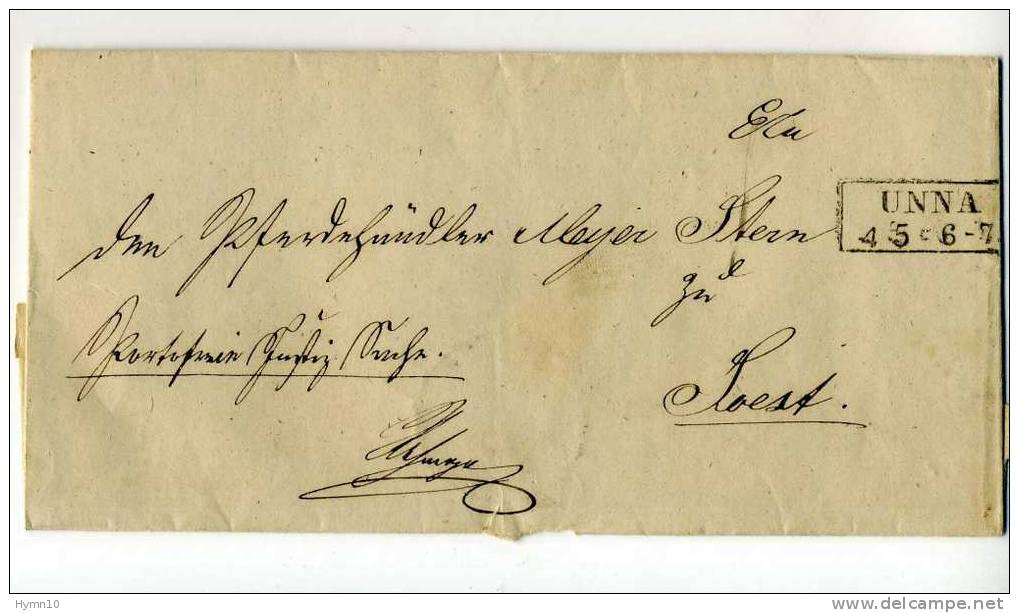 An
den Pferdehändler Meyer Stern
zu
Soest.
Portofreie Justiz Sache.
UNNA
4 5 6-7
Hymn10
www.delcampe.net